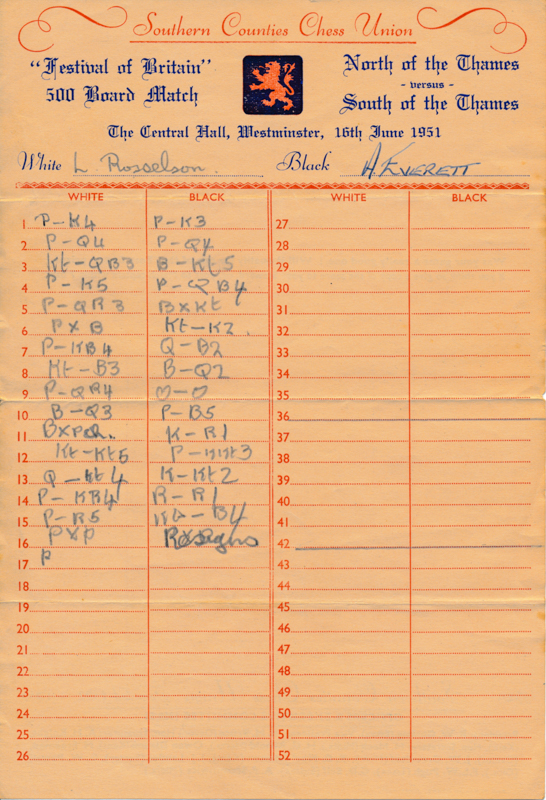 Southern Counties Chess Union
"Festival of Britain"
500 Board Match
North of the Thames
- versus -
South of the Thames
The Central Hall, Westminster, 16th June 1951
White L Rosselson. Black A. EVERETT
WHITE BLACK WHITE BLACK
1 P-K4 P-K3 27
2 P-Q4 P-Q4 28
3 Kt-QB3 B-Kt5 29
4 P-K5 P-QB4 30
5 P-QR3 BxKt 31
6 PxB Kt-K2. 32
7 P-KB4 Q-B2 33
8 Kt-B3 B-Q2 34
9 P-QR4 O-O 35
10 B-Q3 P-B5 36
11 K-R1 37
12 Kt-Kt5 38
13 Q-Kt4 K-Kt2 39
14 P-KB4 R-R1 40
15 P-R5 Kt-B4 41
16 PxP Resigns 42
17 P 43
18 44
19 45
20 46
21 47
22 48
23 49
24 50
25 51
26 52